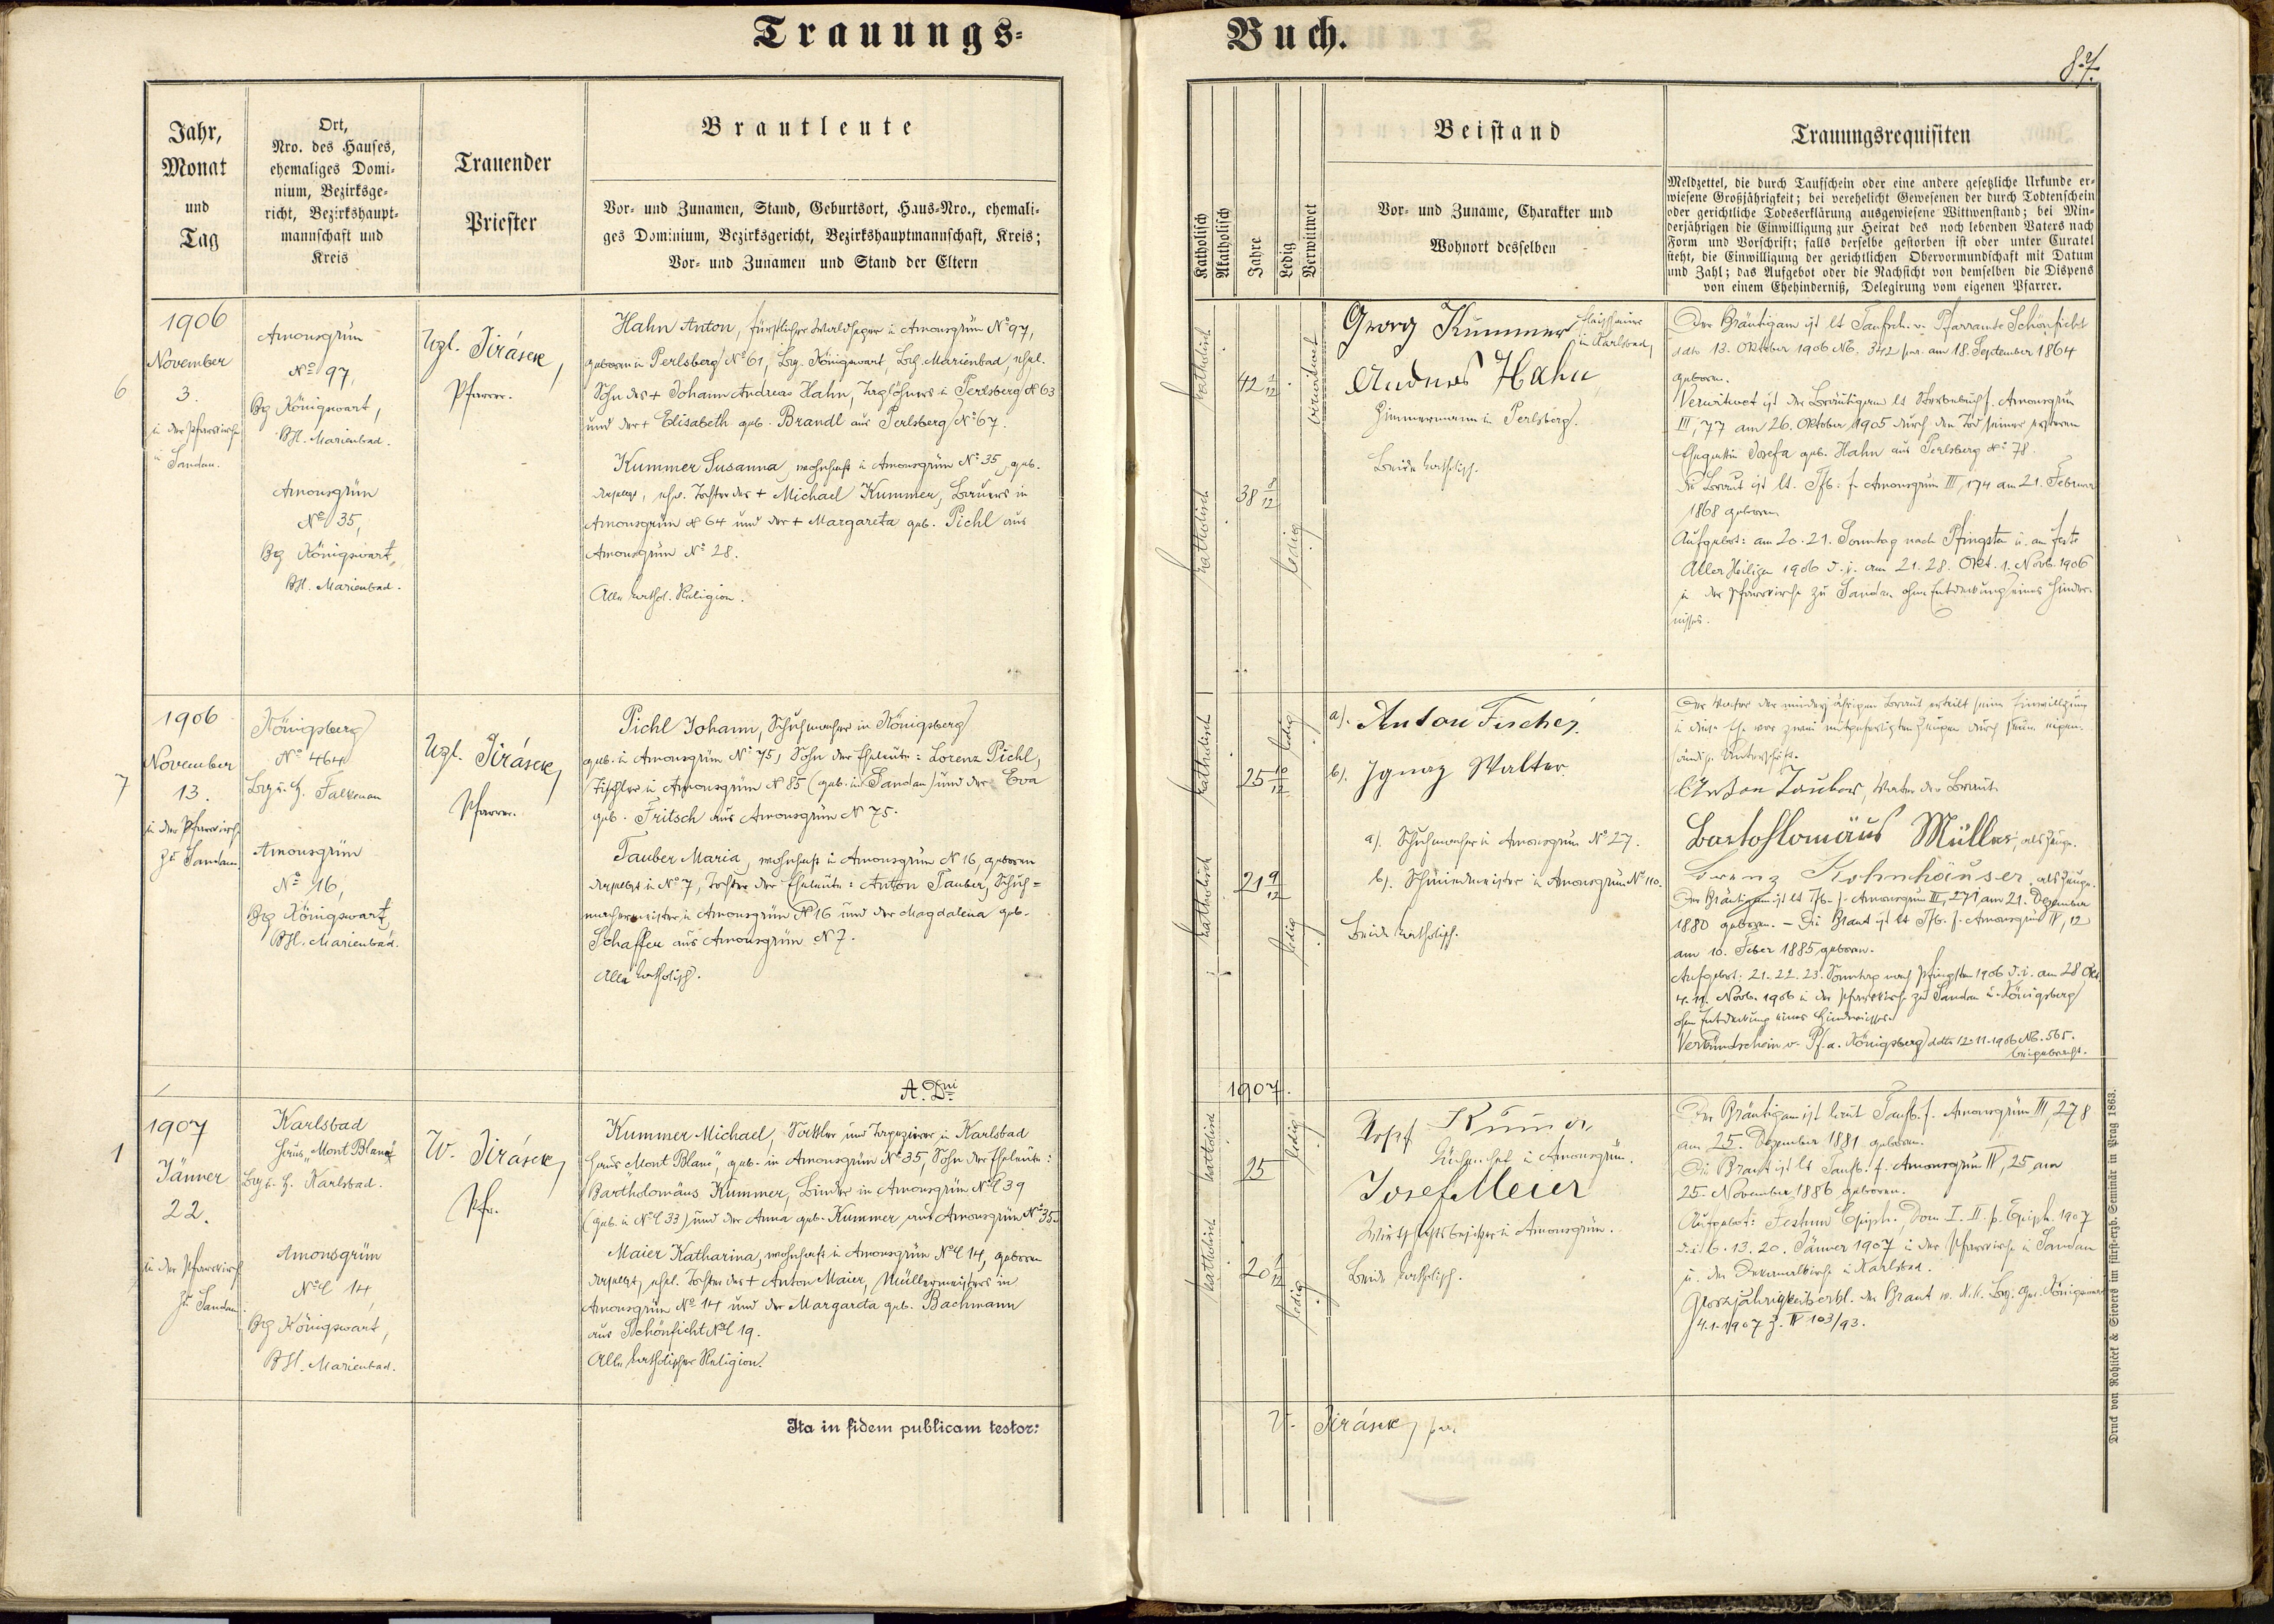 Trauungs-
Jahr,
Monat
und
Tag
Ort,
Nro. des Hauses,
ehemaliges Domi-
nium, Bezirksge-
richt, Bezirkshaupt-
mannschaft und
Kreis
Trauender
Priester
Brautleute
Vor- und Zunamen, Stand, Geburtsort, Haus-Nro., ehemali-
ges Dominium, Bezirksgericht, Bezirkshauptmannschaft, Kreis;
Vor- und Zunamen und Stand der Eltern
6
1906
November
3.
in der Pfarrkirche
Sandau.
Amonsgrün
No 97,
Bg Königswart,
BH. Marienbad.
Amonsgrün
No 35,
Bg Königswart,
BH. Marienbad.
Jirásek,
Pfarrer.
Hahn Anton, fürstlicher Waldheger in Amonsgrün No 97,
geboren in Perlsberg No 61, Bg. Königswart, BH. Marienbad, ehel.
Sohn des + Johann Andreas Hahn, Taglöhners in Perlsberg N 63
und der + Elisabeth geb. Brandl aus Perlsberg No 67.
Kummer Susanna, wohnhaft in Amonsgrün No 35, geb.
daselbst, ehel. Tochter des + Michael Kummer, Bauers in
Amonsgrün N 64 und der + Margareta geb. Pichl aus
Amonsgrün No 28.
Alle kathol. Religion.
7
1906
November
13.
in der Pfarrkirche
zu Sandau
Königsberg
No 464
Falkenau
Amonsgrün
No 16,
Bg Königswart,
BH. Marienbad.
Jirásek,
Pfarrer.
Pichl Johann, Schuhmacher in Königsberg,
geb. in Amonsgrün No 75, Sohn der Eheleute: Lorenz Pichl,
Tischler in Amonsgrün N 85 (geb. in Sandau) und der Eva
geb. Fritsch aus Amonsgrün N 75.
Tauber Maria, wohnhaft in Amonsgrün N 16, geboren
daselbst in No 7, Tochter der Eheleute: Anton Tauber, Schuh=
machermeister in Amonsgrün No 16 und der Magdalena geb.
Schaffer aus Amonsgrün N 7.
Alle katholisch.
A. Dni
1
1907
Jänner
22.
in der Pfarrkirche
zu Sandau
Karlsbad
Haus „Mont Blanc"
Karlsbad.
Amonsgrün
No 14
Bg Königswart,
BH. Marienbad.
W. Jirásek,
Pfr.
Kummer Michael, Sattler und Tapezierer in Karlsbad
Haus „Mont Blanc", geb. in Amonsgrün No 35, Sohn der Eheleute:
Bartholomäus Kummer, Binder in Amonsgrün No 39
(geb. in No 33) und der Anna geb. Kummer aus Amonsgrün No 35.
Maier Katharina, wohnhaft in Amonsgrün No 14, geboren
daselbst, ehel. Tochter des + Anton Maier, Müllermeisters in
Amonsgrün No 14 und der Margareta geb. Bachmann
aus Schönficht No 19.
Alle katholischer Religion.
Ita in fidem publicam testor:
Buch.
87.
Katholisch
Akatholisch
Jahre
Ledig
Verwittwet
Beistand
Vor- und Zuname, Charakter und
Wohnort desselben
Trauungsrequisiten
Meldzettel, die durch Taufschein oder eine andere gesetzliche Urkunde er-
wiesene Großjährigkeit; bei verehelicht Gewesenen der durch Todtenschein
oder gerichtliche Todeserklärung ausgewiesene Wittwenstand; bei Min-
derjährigen die Einwilligung zur Heirat des noch lebenden Vaters nach
Form und Vorschrift; falls derselbe gestorben ist oder unter Curatel
steht, die Einwilligung der gerichtlichen Obervormundschaft mit Datum
und Zahl; das Aufgebot oder die Nachsicht von demselben die Dispens
von einem Ehehinderniß, Delegirung vom eigenen Pfarrer.
katholisch
42 1/12
verwitwet
katholisch
38 8/12
ledig
Georg Kummer
in Karlsbad,
Andreas Hahn
Zimmermann in Perlsberg.
Beide katholisch.
Der Bräutigam ist lt Taufsch. v. Pfarramte Schönficht
ddto 13. Oktober 1906 No. 342 am 18. September 1864
geboren.
Verwitwet ist der Bräutigam lt Sterbebuch f. Amonsgrün
III, 77 am 26. Oktober 1905 durch den Tod seiner ersteren
Ehegattin Josefa geb. Hahn aus Perlsberg No 78.
Die Braut ist lt. Tfb. f. Amonsgrün III, 174 am 21. Februar
1868 geboren.
Aufgebot: am 20. 21. Sonntag nach Pfingsten u. am Feste
Aller Heiligen 1906 d. i. am 21. 28. Okt. 1. Novb. 1906
in der Pfarrkirche zu Sandau ohne Entdeckung eines Hinder-
nisses.
katholisch
25 10/12
ledig
katholisch
21 9/12
ledig
a). Anton Fischer
b). Ignaz Walter
a). Schuhmacher in Amonsgrün No 27.
b). Schmiedmeister in Amonsgrün No 110.
Beide katholisch.
Der Vater der minderjährigen Braut erteilt seine Einwilligung
in diese Ehe vor zwei mitgefertigten Zeugen durch seine eigen-
händige Unterschrift.
Anton Tauber, Vater der Braut
Bartholomäus Müller, als Zeuge.
Lorenz Kohnhäuser, als Zeuge.
Der Bräutigam ist lt Tfb. f. Amonsgrün III, 271 am 21. Dezember
1880 geboren. – Die Braut ist lt Tfb. f. Amonsgrün IV, 12
am 10. Feber 1885 geboren.
Aufgebot: 21. 22. 23. Sonntag nach Pfingsten 1906 d. i. am 28 Okt.
4. 11. Novb. 1906 in der Pfarrkirche zu Sandau u. Königsberg
ohne Entdeckung eines Hindernisses.
Verkündschein v. Pf. a. Königsberg ddto 12-11-1906 No. 565.
beigebracht.
1907.
katholisch
25
ledig
katholisch
20 1/12
ledig
Josef
in Amonsgrün.
Josef Meier
Wirtschaftsbesitzer in Amonsgrün.
Beide katholisch.
Der Bräutigam ist laut Taufb. f. Amonsgrün III, 278
am 25. Dezember 1881 geboren.
Die Braut ist lt Taufb. f. Amonsgrün IV, 25 am
25. November 1886 geboren.
Aufgebot: Festum Epiph. Dom I. II. p. Epiph. 1907
d. i. 6. 13. 20. Jänner 1907 in der Pfarrkirche in Sandau
u. der Dekanalkirche in Karlsbad.
Grossjährigkeitserkl. der Braut v. k. k. Bez. Ger. Königswart
4.1.1907 Z. IV 103/93.
Jirásek,
Druck von Rohliček & Sievers im fürst-erzb. Seminär in Prag 1863.